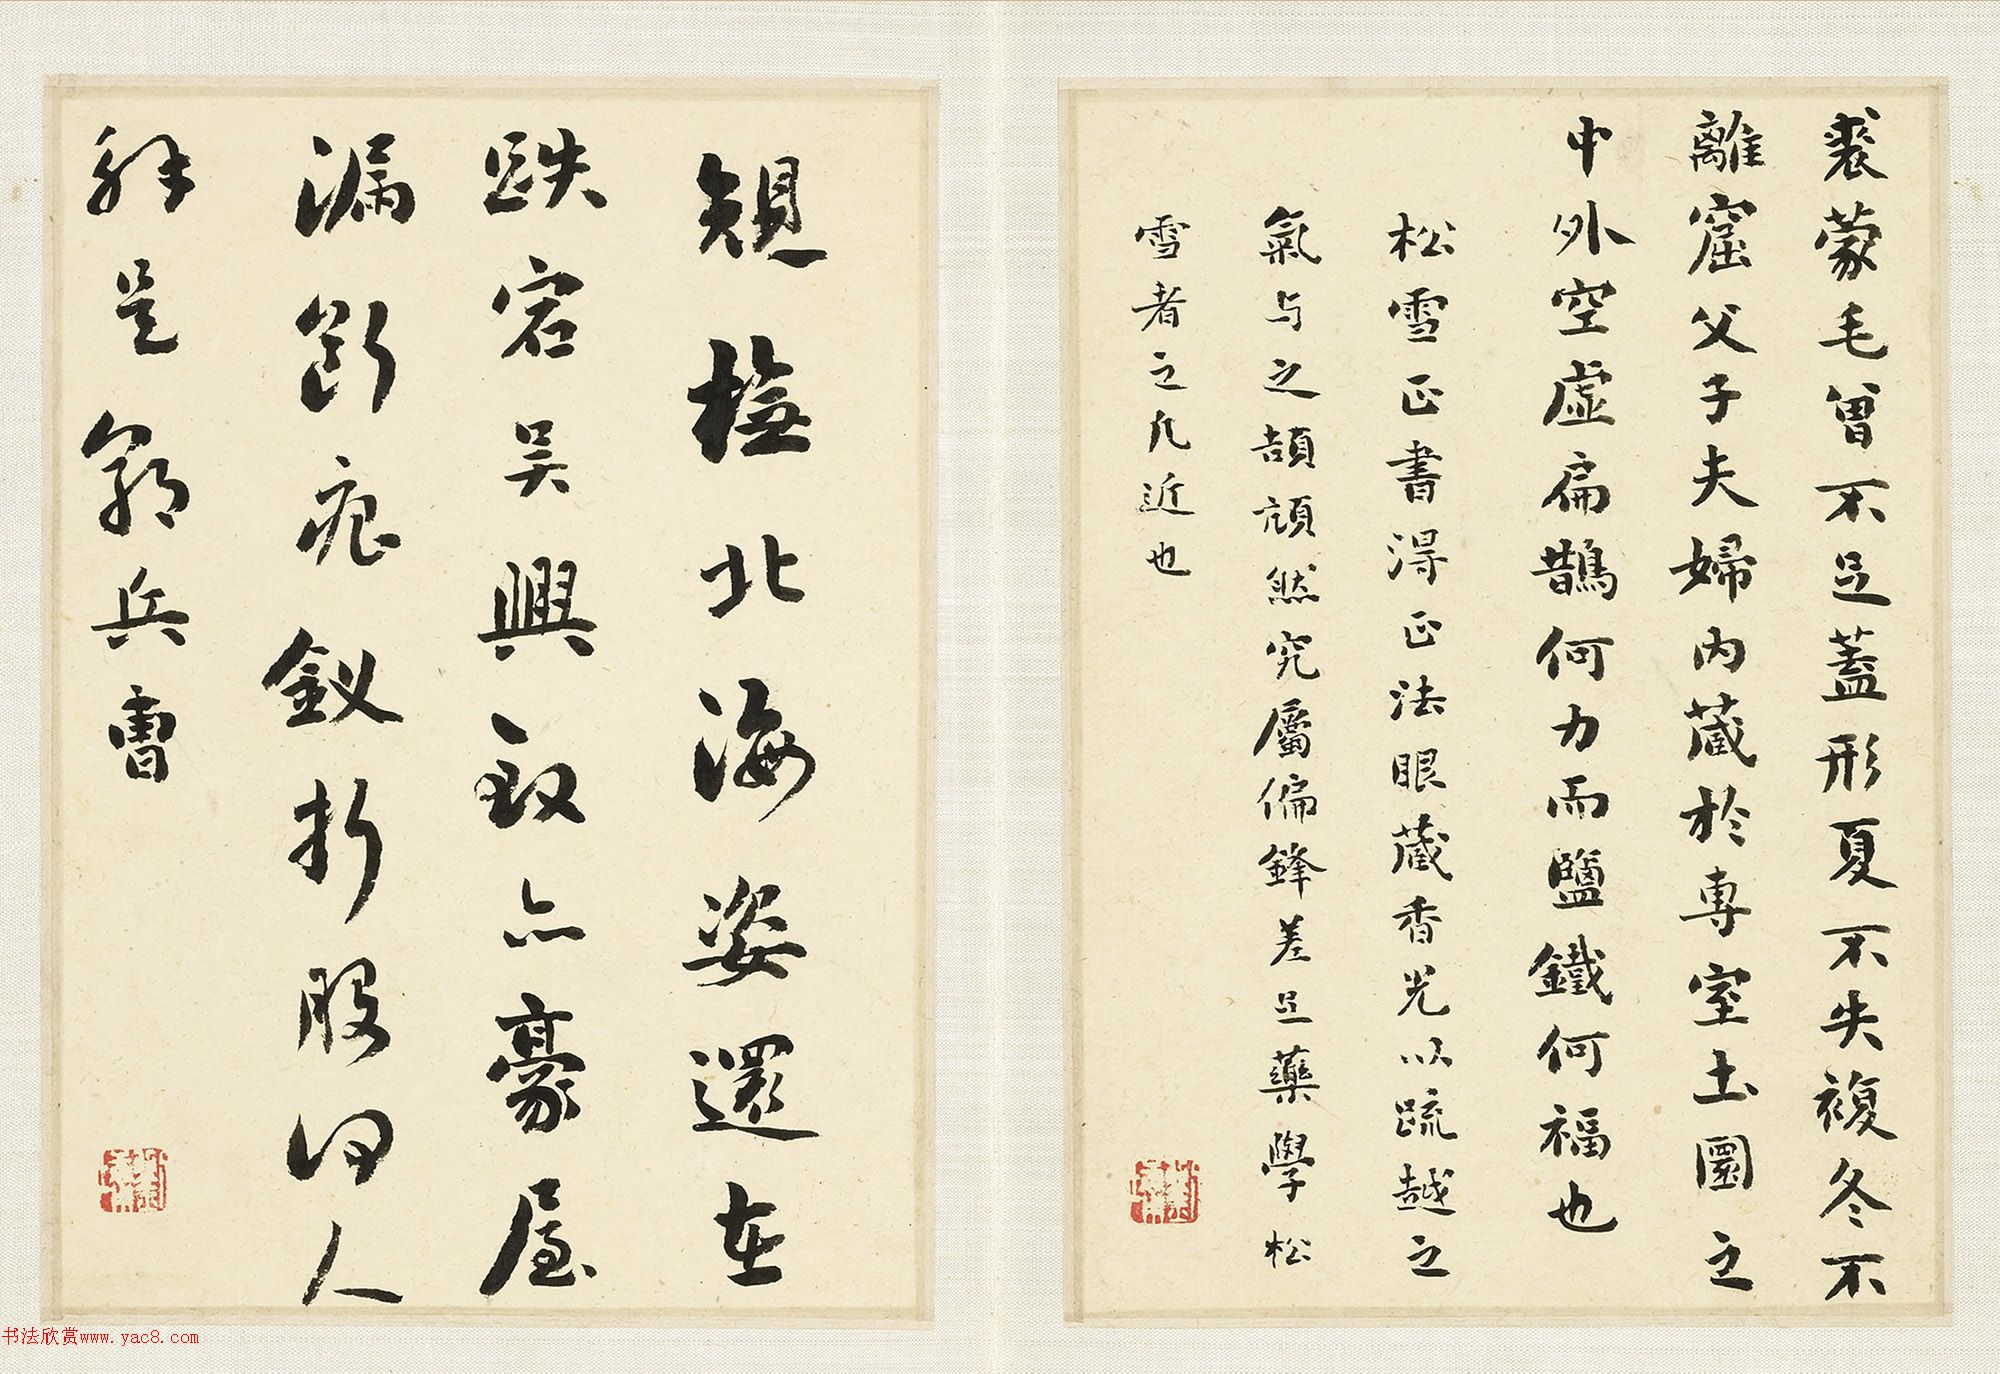 裘蒙毛曾不足蓋形夏不失複冬不
離窟父子夫婦内藏於専室土圜之
中外空虛扁鵲何力而鹽鐵何福也
松雪正書得正法眼藏香光以疏越之
氣与之頡頏然究屬偏鋒差足藥學松
雪者之凡近也
規橅北海姿還在
跌宕吳興致亦豪屋
漏斷痕釵折股何人
解是郭兵曹
书法欣赏www.yac8.com